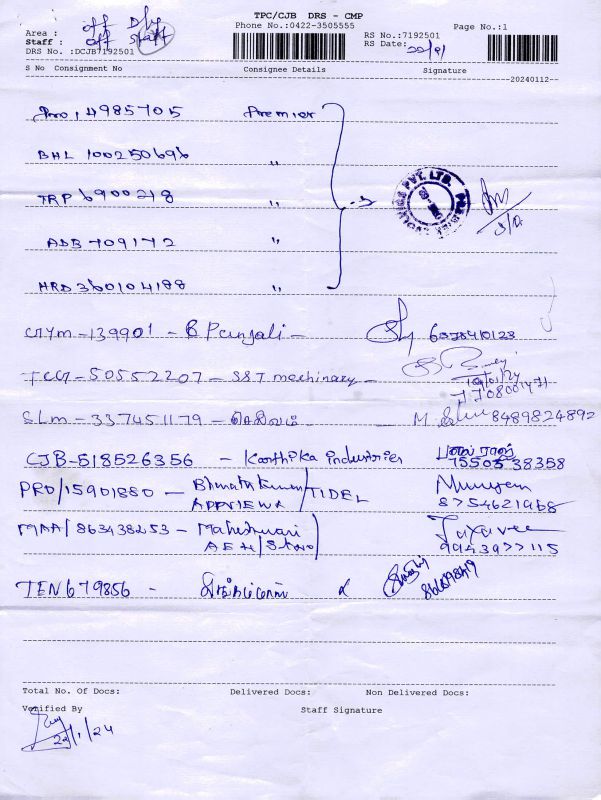 TPC/CJB DRS - CMP
Phone No.:0422-3505555
Page No.:1
Area :
off Dby
Staff :
off Staff
DRS No. :DCJB7192501
RS No.:7192501
RS Date:
S No Consignment No Consignee Details Signature
20240112
Pro 14985705 Premier
BHL 100250696 ,,
TRP 6900218 ,,
ADB 709172 ,,
HRD 360104188 ,,
PVT. LTD.
CTYM-139901 - B Panjali - 6378410123
TCG-50552207 - S&T machinary -
19/01/24
SLM-337451179 - செல்வம் - 8489824892
CJB-518526356 - Karthika industries
பால் ராஜ்
7550538358
PRO/15901880 - Bharath kumar / TIDEL
8754621968
MAA/863438253 - Maheshwari
9943977115
TEN 679856 -
Total No. Of Docs: Delivered Docs: Non Delivered Docs:
Verified By Staff Signature
23/1/24